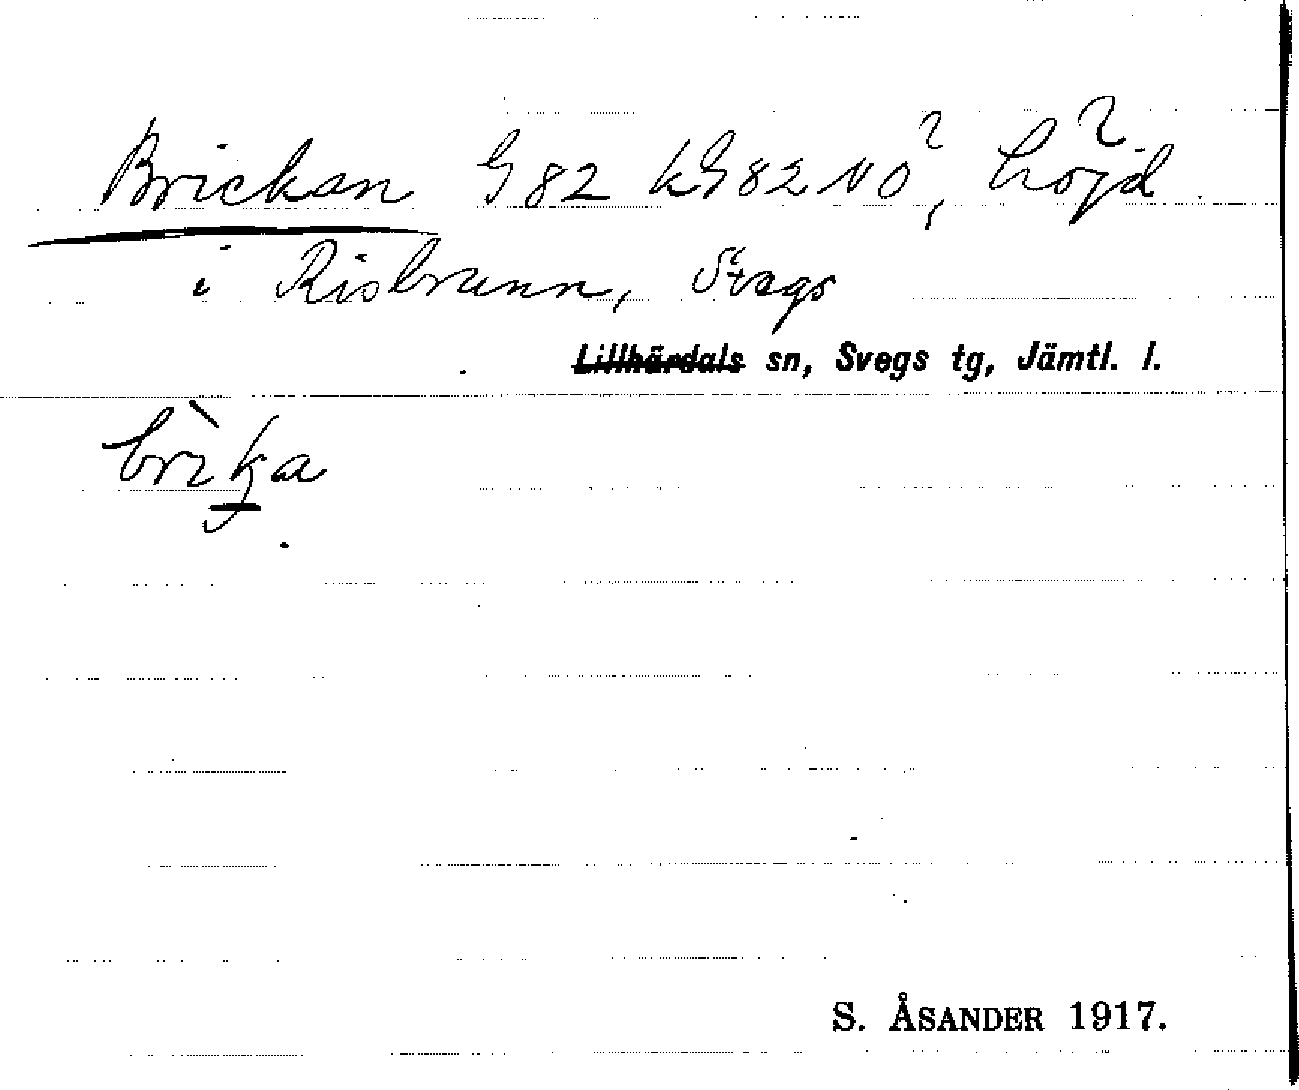 Brickan G 82 kG 82 NO?, höjd?
i Risbrunn, Svegs
Lillhärdals sn, Svegs tg, Jämtl. l.
brìka
S. ÅSANDER 1917.